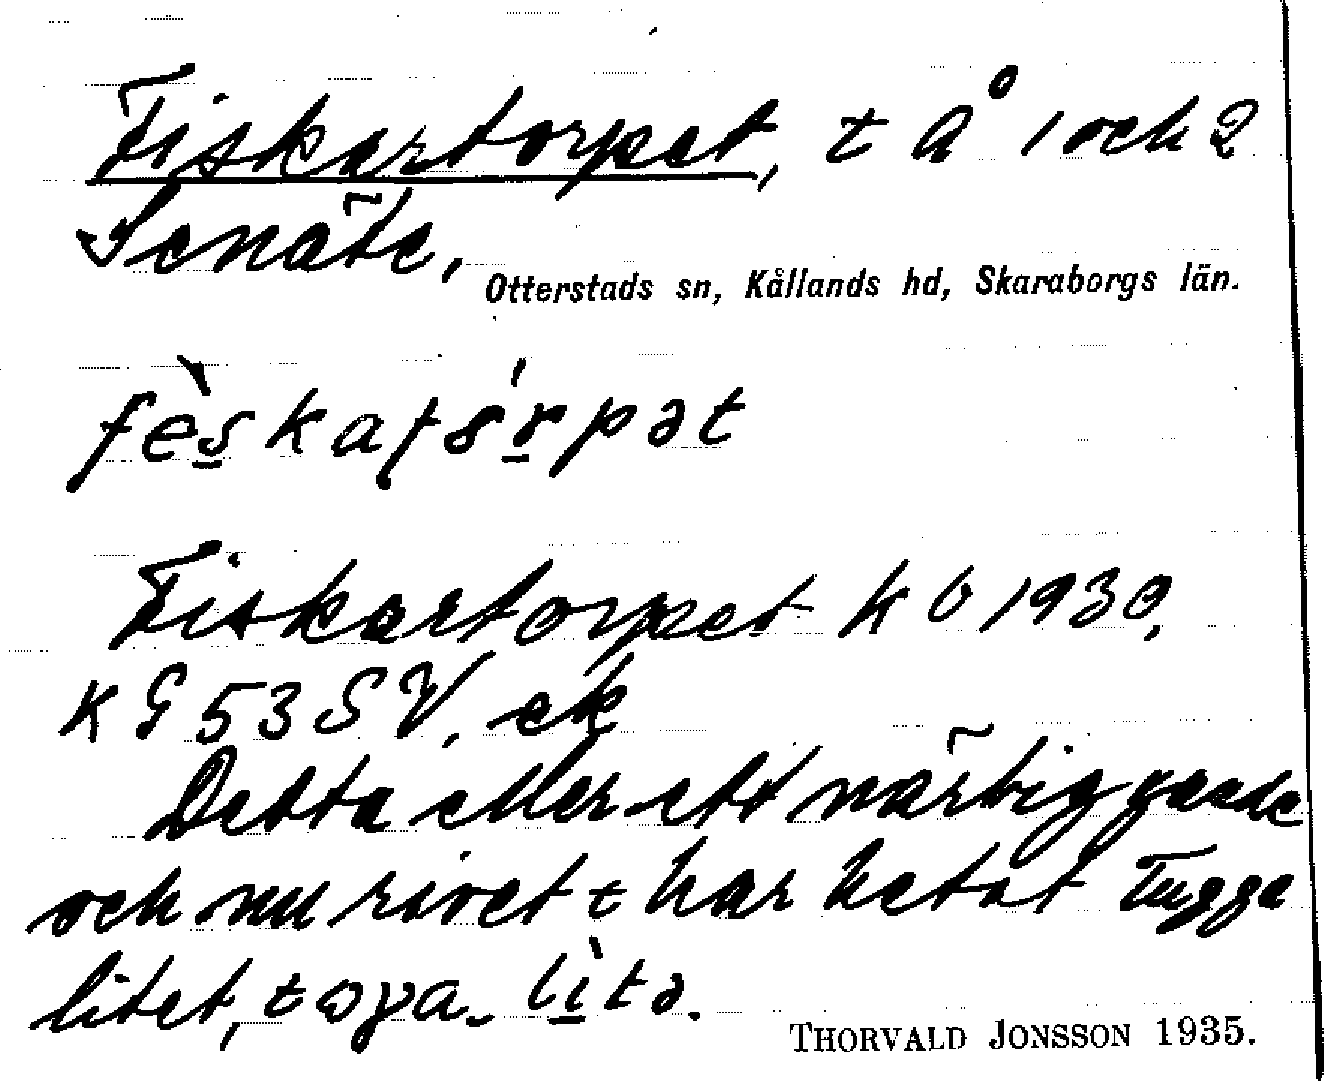 Fiskartorpet, t å 1 och 2
Senäte,
Otterstads sn, Kållands hd, Skaraborgs län.
fèskatórpət
Fiskartorpet k b 1930,
K G 53 SV. ek
Detta eller ett närbiggande
och nu rivet t har hetat Tugga
litet, toga lìtə.
THORVALD JONSSON 1935.